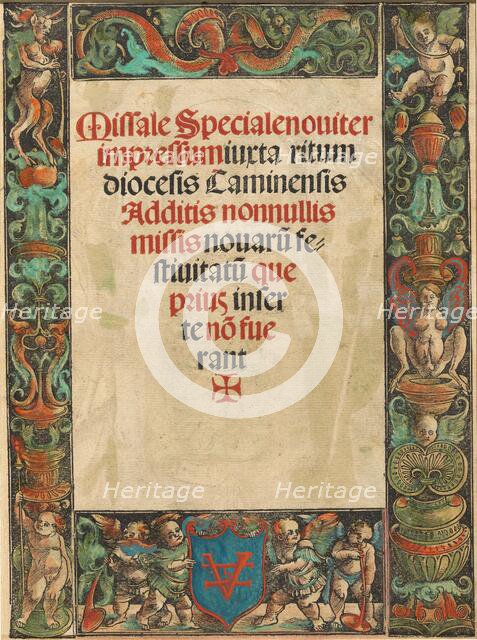 Missale Specialenoviter
impressum iuxta ritum
diocesis Caminensis
Additis nonnullis
missis nouarū fe⸗
stiuitatū que
prius inser
te nō fue
rant
Heritage
Heritage
Heritage
Heritage
Heritage
Heritage
Heritage